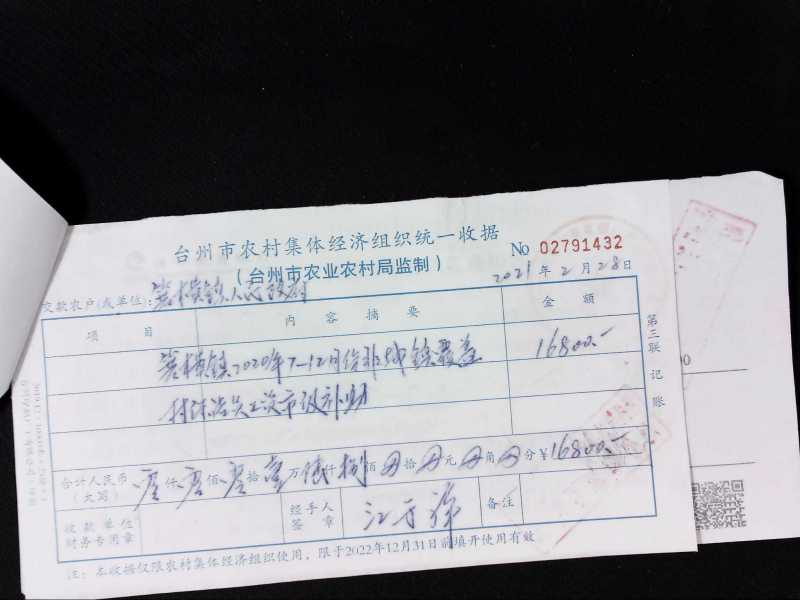 台州市农村集体经济组织统一收据
(台州市农业农村局监制)
No 02791432
2021年2月28日
交款农户(或单位):岩横镇人民政府
项目 内容摘要 金额
镇2020年7-12月份非城镇覆盖 16800.-
村保洁员工资市级补助
第三联 记账
合计人民币(大写) 零仟零佰零拾壹万陆仟捌佰 拾 元 角 分¥16800.-
收款单位财务专用章
经手人签章
江
备注
注:本收据仅限农村集体经济组织使用,限于2022年12月31日前填开使用有效。